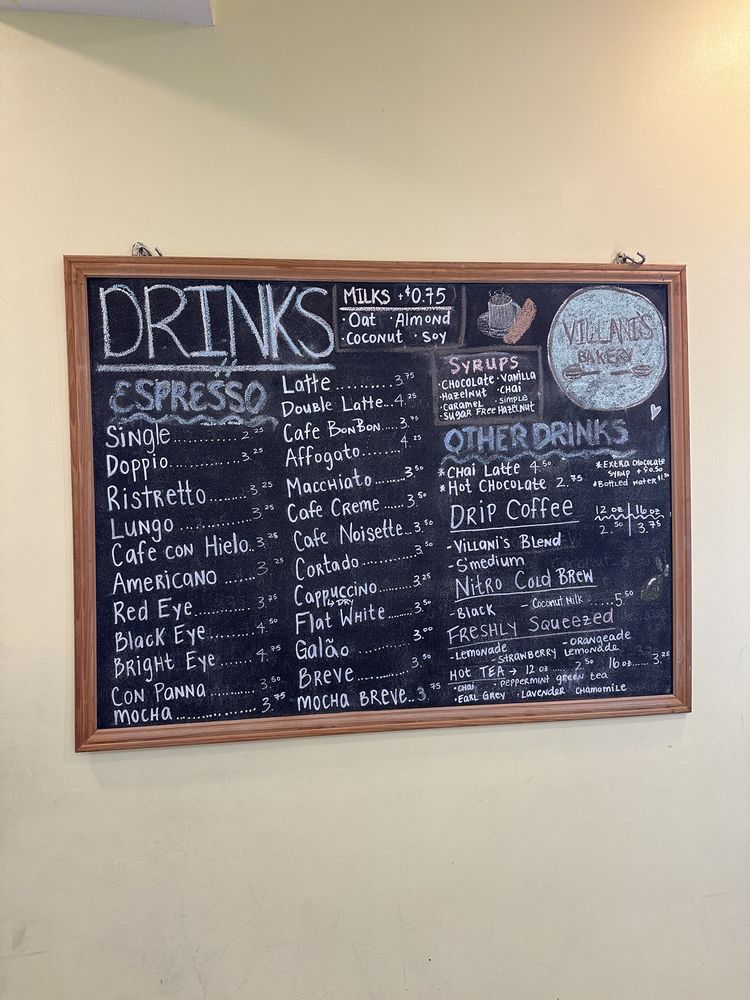 DRINKS
ESPRESSO
Single 2.25
Doppio 3.25
Ristretto 3.25
Lungo 3.25
Cafe con Hielo 3.25
Americano 3.25
Red Eye 3.75
Black Eye 4.50
Bright Eye 4.75
Con Panna 3.50
Mocha 3.75
Latte 3.75
Double Latte 4.25
Cafe BonBon 3.75
Affogato 4.25
Macchiato 3.50
Cafe Creme 3.50
Cafe Noisette 3.50
Cortado 3.50
Cappuccino 3.25
↳ DRY
Flat White 3.50
Galão 3.00
Breve 3.50
Mocha Breve 3.75
MILKS +$0.75
·Oat ·Almond
·Coconut ·Soy
SYRUPS
·Chocolate ·Vanilla
·Hazelnut ·Chai
·Caramel ·Simple
·Sugar Free Hazelnut
VILLANI'S
BAKERY
OTHER DRINKS
*Chai Latte 4.50
*Hot Chocolate 2.75
*Extra Chocolate
Syrup +$0.50
*Bottled Water $1.50
Drip Coffee
12 oz | 16 oz
2.50 | 3.75
-Villani's Blend
-S'medium
Nitro Cold Brew
-Black -Coconut Milk 5.50
Freshly Squeezed
-Lemonade -Orangeade
-Strawberry Lemonade
Hot Tea → 12 oz 2.50 16 oz 3.25
·Chai ·Peppermint green tea
·Earl Grey ·Lavender Chamomile